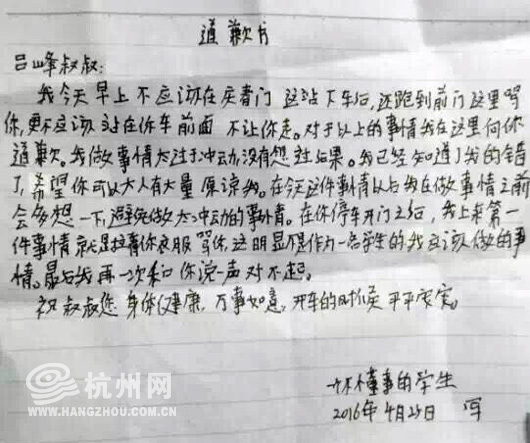 道歉书
吕峰叔叔:
我今天早上不应该在庆春门这站下车后,还跑到前门这里骂
你,更不应该站在你车前面不让你走。对于以上的事情我在这里向你
道歉。我做事情太过于冲动,没有想过后果。我已经知道了我的错
了,希望你可以大人有大量原谅我。在今天这件事情以后我在做事情之前
会多想一下,避免做太冲动的事情。在你停车开门之后,我上来第一
件事情就是拉着你衣服骂你,这明显不是作为一名学生的我应该做的事
情。最后我再一次和你说一声对不起。
祝叔叔您身体健康,万事如意,开车的时候平平安安。
一个不懂事的学生
2016年4月25日 写
杭州网
WWW.HANGZHOU.COM.CN